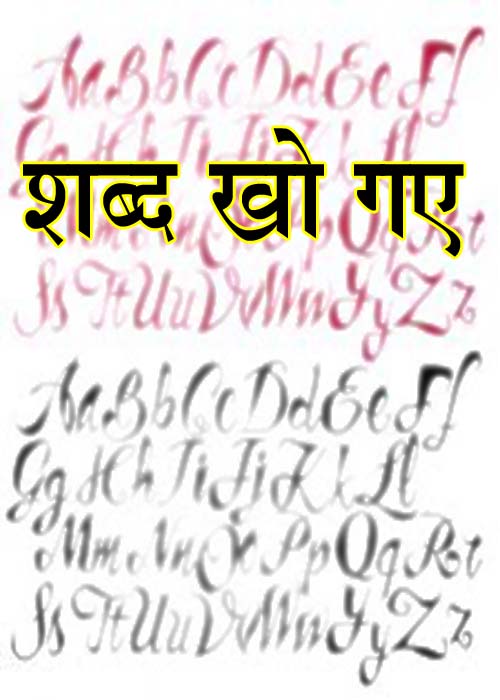 Aa Bb Cc Dd Ee Ff
Gg Hh Ii Jj Kk Ll
शब्द खो गए
Mm Nn Oo Pp Qq Rr
Ss Tt Uu Vv Ww Yy Zz
Aa Bb Cc Dd Ee Ff
Gg Hh Ii Jj Kk Ll
Mm Nn Oo Pp Qq Rr
Ss Tt Uu Vv Ww Yy Zz